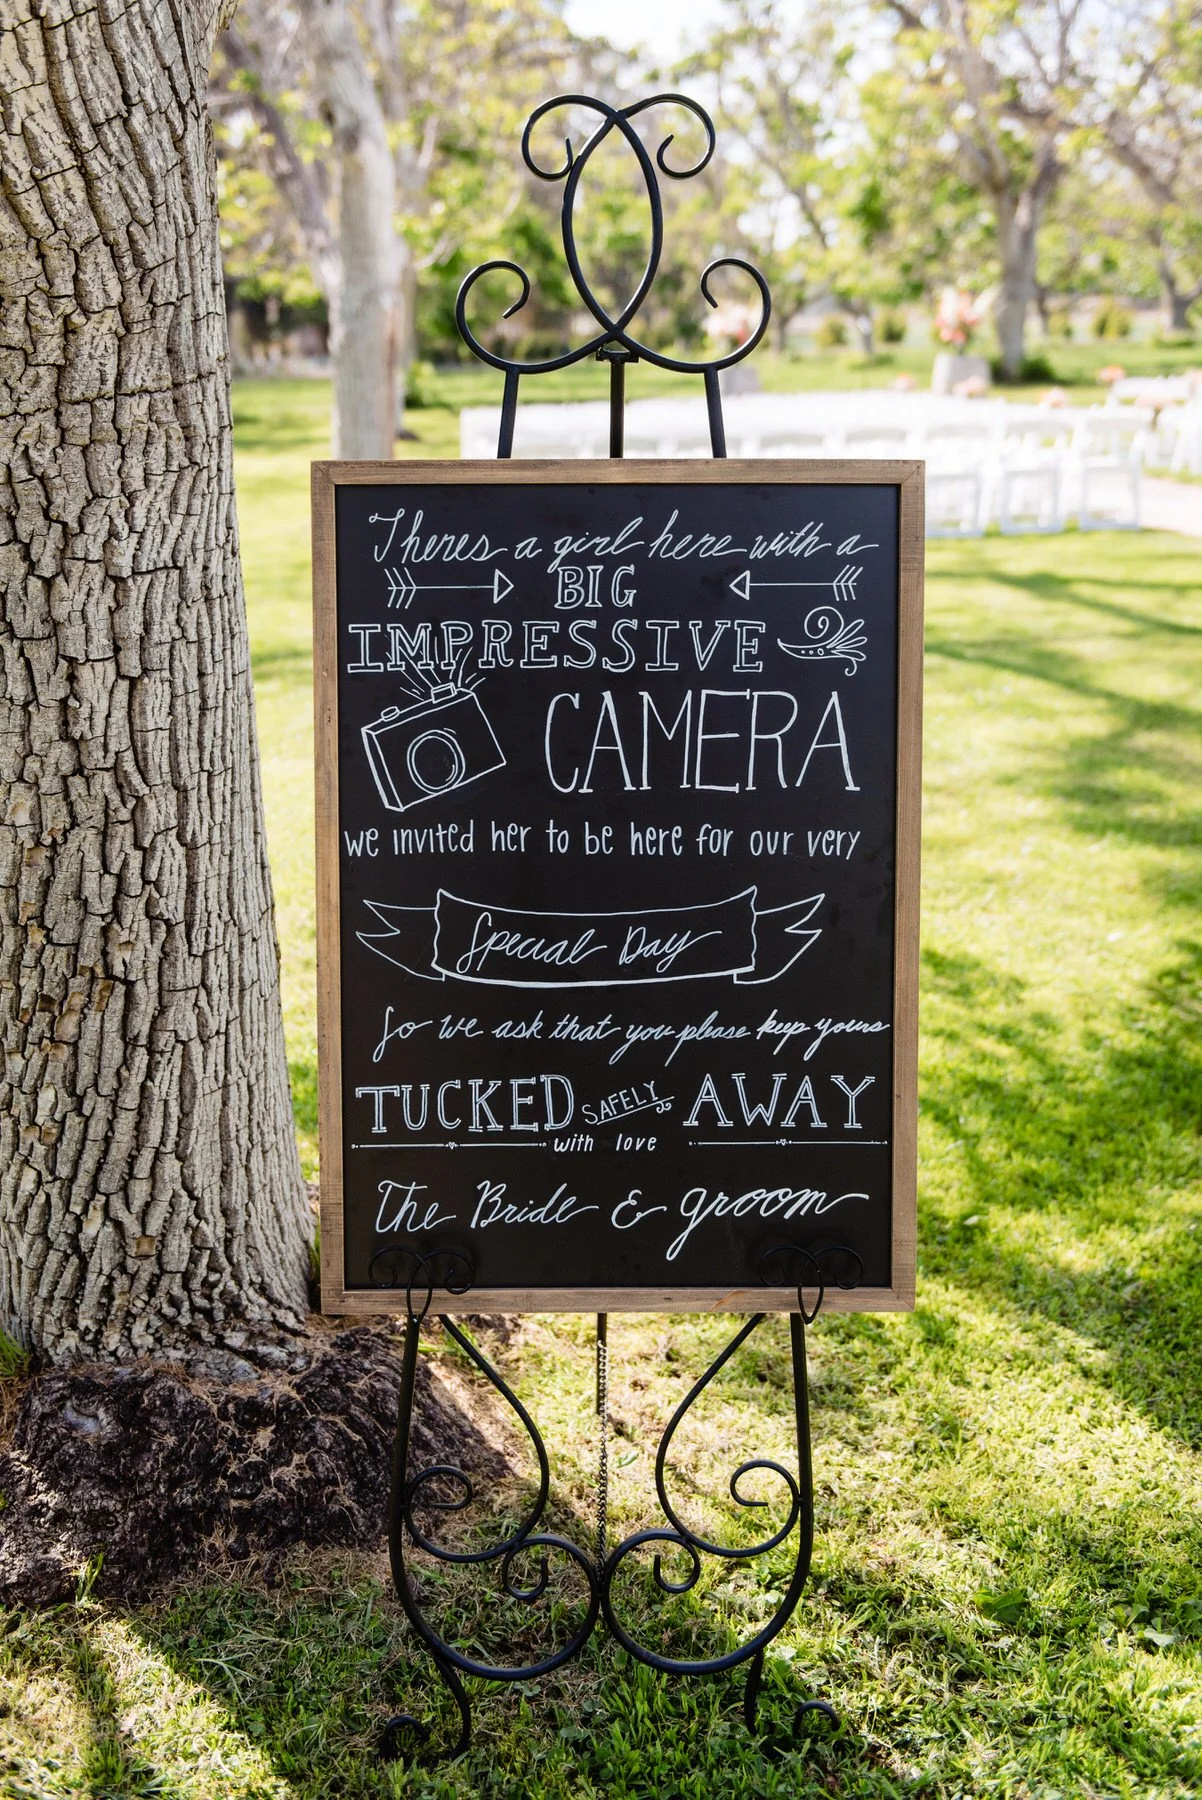 Theres a girl here with a
BIG
IMPRESSIVE
CAMERA
we invited her to be here for our very
Special Day
So we ask that you please keep yours
TUCKED SAFELY AWAY
with love
The Bride & groom